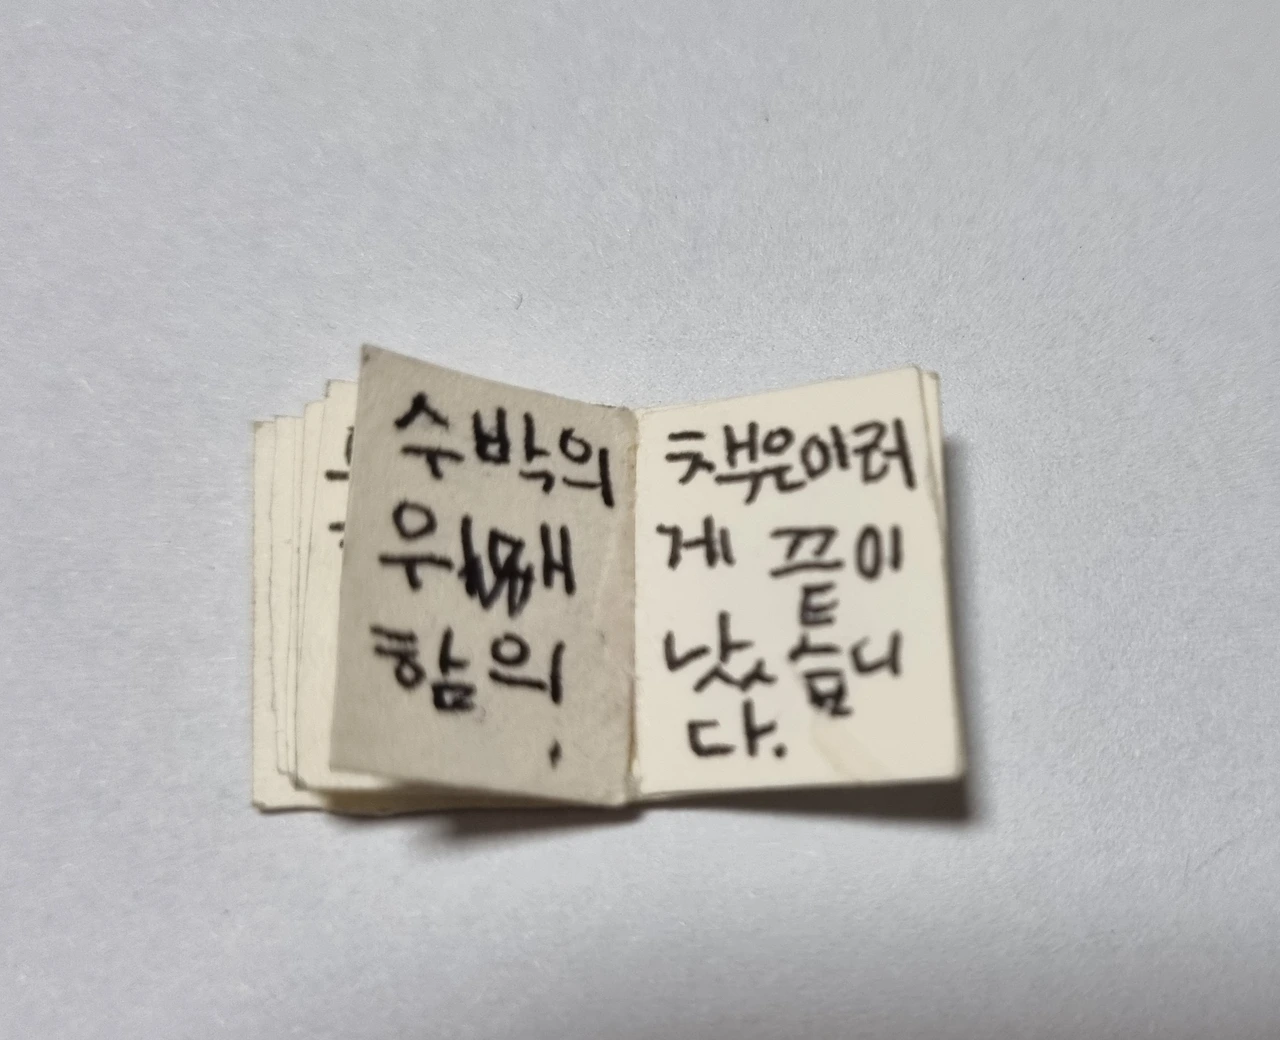 수박의
우
함의
.
책은이러
게 끝이
났습니
다.